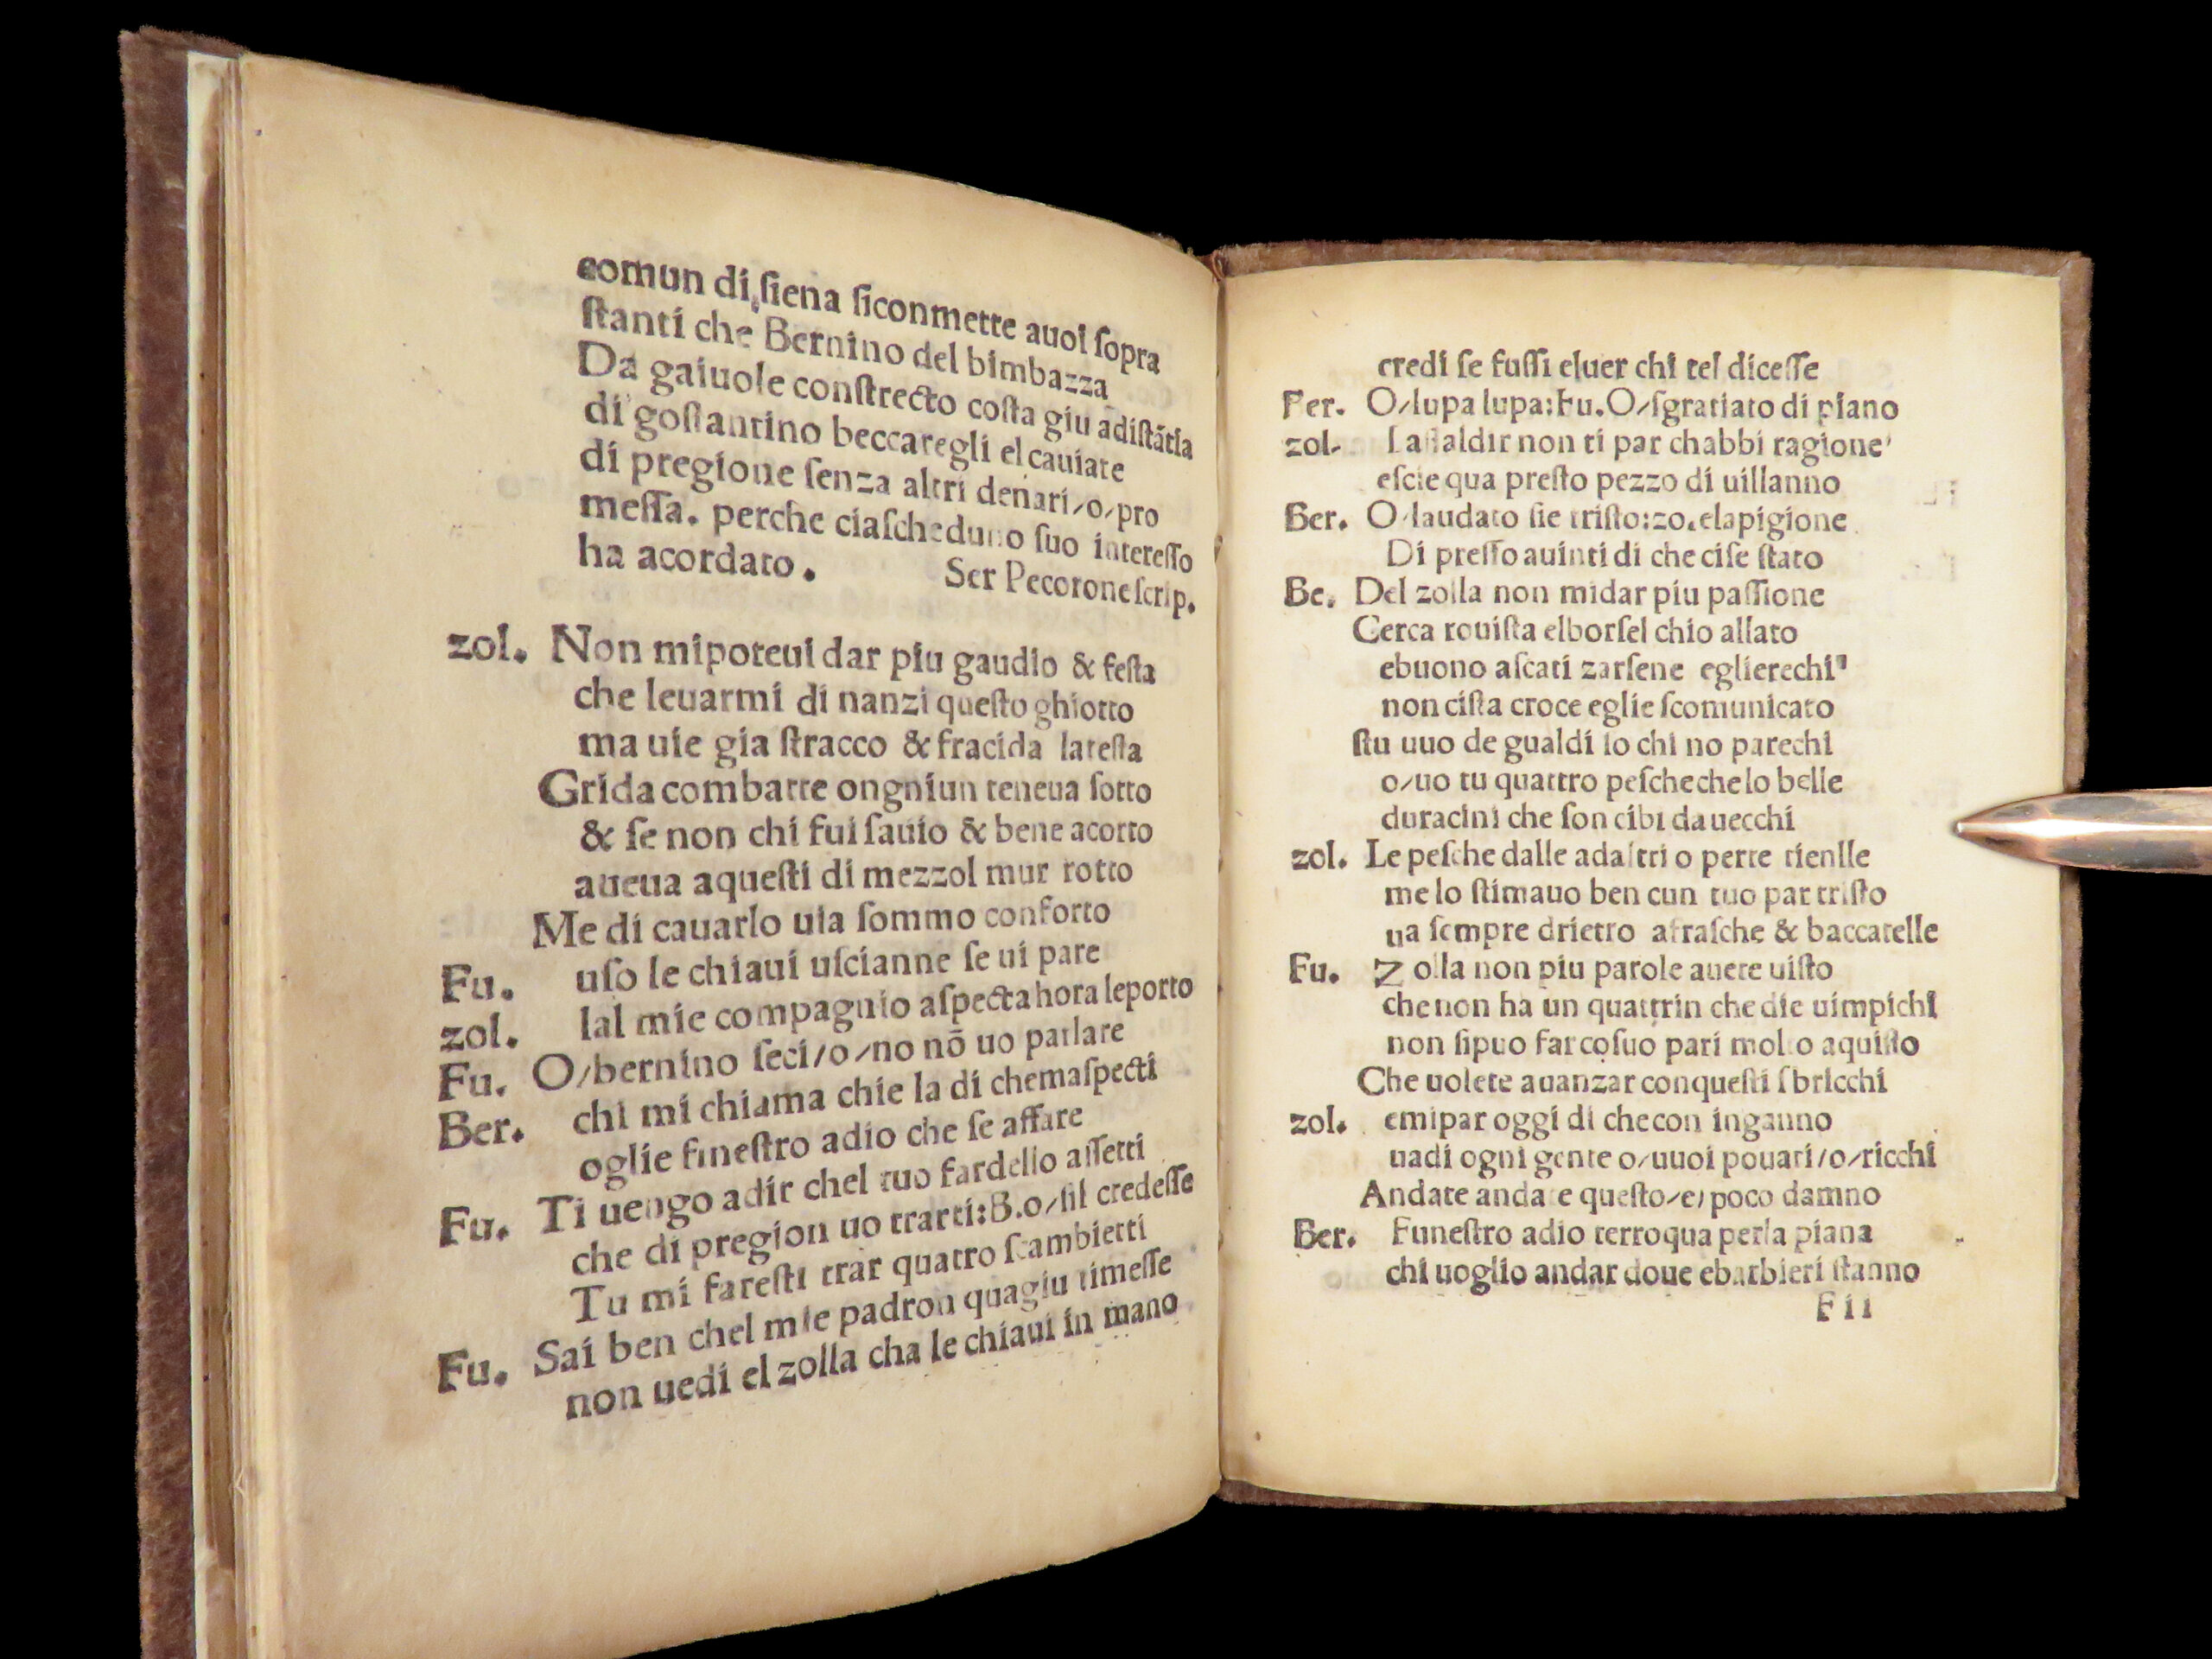 comun di ſiena ſiconmette auoi ſopra
ſtanti che Bernino del bimbazza
Da gaiuole conſtrecto coſta giu adiſtãtia
di goſtantino beccaregli el cauiate
di pregione ſenza altri denari/o/pro
meſſa. perche ciaſcheduno ſuo intereſſo
ha acordato.
Ser Pecorone ſcrip.
zol. Non mipoteui dar piu gaudio & feſta
che leuarmi di nanzi queſto ghiotto
ma uie gia ſtracco & fracida lateſta
Grida combatte ongniun teneua ſotto
& ſe non chi fui ſauio & bene acorto
aueua aqueſti di mezzol mur rotto
Me di cauarlo uia ſommo conforto
Fu. uſo le chiaui uſcianne ſe ui pare
zol. lal mie compagnio aſpecta hora leporto
Fu. O/bernino ſeci/o/no nõ uo parlare
Ber. chi mi chiama chie la di chemaſpecti
oglie fineſtro adio che ſe affare
Fu. Ti uengo adir chel tuo fardello aſſetti
che di pregion uo trarti:B.o/ſil credeſſe
Tu mi fareſti trar quatro ſcambietti
Fu. Sai ben chel mie padron quagiu timeſſe
non uedi el zolla cha le chiaui in mano
credi ſe fuſſi eluer chi tel diceſſe
Ber. O/lupa lupa:Fu.O/ſgratiato di piano
zol. non ti par chabbi ragione
eſcie qua preſto pezzo di uillanno
Ber. O/laudato ſie triſto:zo.elapigione
Di preſſo auinti di che ciſe ſtato
Be. Del zolla non midar piu paſſione
Cerca rouiſta elborſel chio allato
ebuono aſcati zarſene eglierechi
non ciſta croce eglie ſcomunicato
ſtu uuo de gualdi io chi no parechi
o/uo tu quattro peſche chelo belle
duracini che ſon cibi da uecchi
zol. Le peſche dalle adaltri o perte tienlle
me lo ſtimauo ben cun tuo par triſto
ua ſempre drietro afraſche & baccatelle
Fu. Zolla non piu parole auere uiſto
che non ha un quattrin che die uimpichi
non ſipuo far coſuo pari molto aquiſto
Che uolete auanzar conqueſti ſbricchi
zol. emipar oggi di checon inganno
uadi ogni gente o/uuoi pouari/o/ricchi
Andate andate queſto/e/poco damno
Ber. Funeſtro adio terroqua perla piana
chi uoglio andar doue ebarbieri ſtanno
F ii